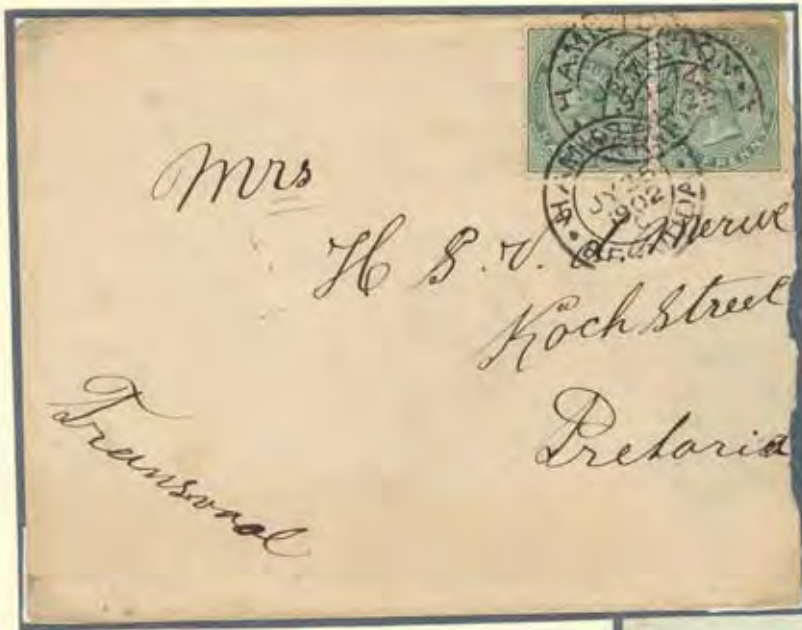 HAMILTON
HAMILTON
JY 25
1902
Mrs
H S. V. d Merwe
Koch Street
Pretoria
Transvaal